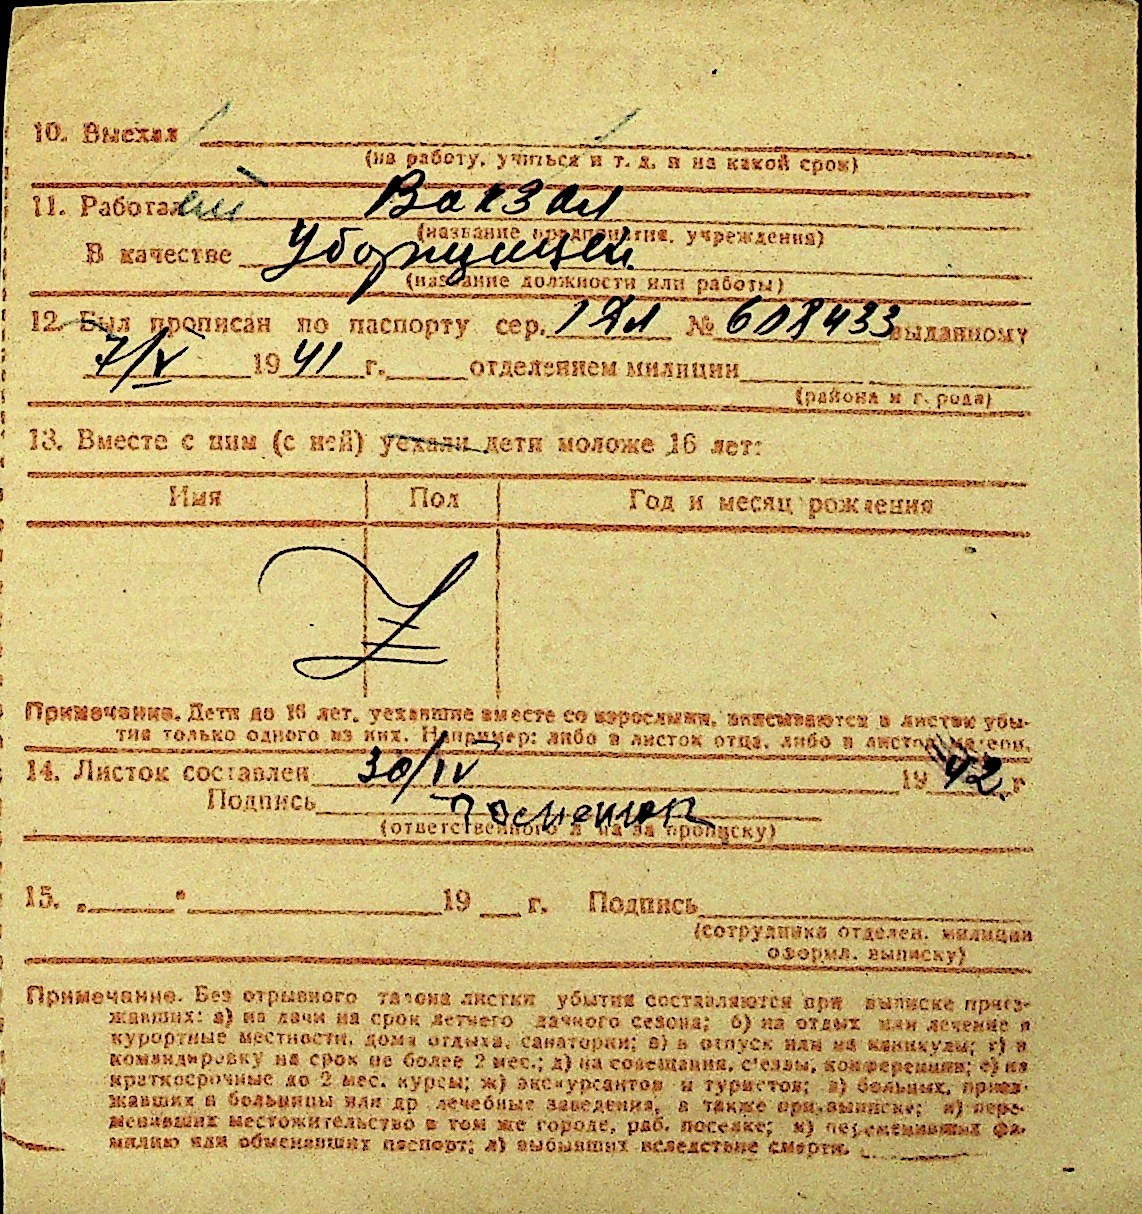 10. Выехал
(на работу, учиться и т. д. и на какой срок)
11. Работал Вакзал
(название предприятия, учреждения)
В качестве Уборщицей
(название должности или работы)
12. Был прописан по паспорту сер. № 608433 выданному
7/V 1941 г. отделением милиции
(района и г. рода)
13. Вместе с ним (с ней) уехали дети моложе 16 лет:
Имя Пол Год и месяц рождения
Примечание. Дети до 16 лет, уехавшие вместе со взрослыми, вписываются в листок убы-
тия только одного из них. Например: либо в листок отца, либо в листок матери.
14. Листок составлен 30/IV 1942 г
Подпись
(ответственного л на за прописку)
15. „ " 19 г. Подпись
(сотрудника отделен. милиции
оформл. выписку)
Примечание. Без отрывного талона листки убытия составляются при выписке приез-
жавших: а) на дачи на срок летнего дачного сезона; б) на отдых или лечение в
курортные местности, дома отдыха, санатории; в) в отпуск или на каникулы; г) в
командировку на срок не более 2 мес.; д) на совещания, съезды, конференции; е) на
краткосрочные до 2 мес. курсы; ж) экскурсантов и туристов; з) больных, приез-
жавших в больницы или др лечебные заведения, а также при выписке; и) пере-
менивших местожительство в том же городе, раб. поселке; к) переменивших фа-
милию или обменивших паспорт; л) выбывших вследствие смерти.